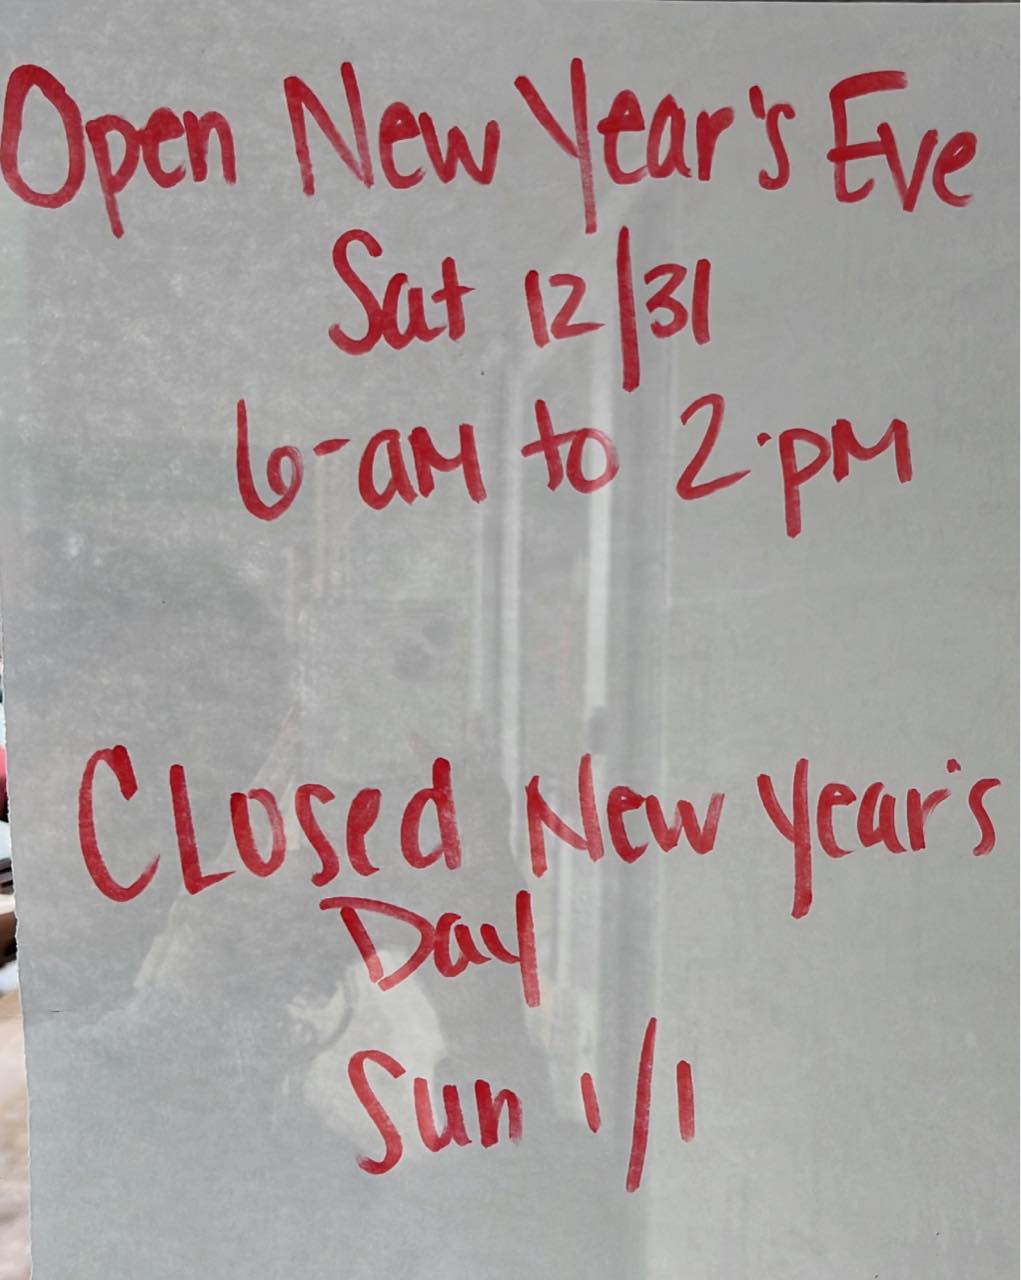 Open New Year's Eve
Sat 12/31
6-am to 2-pm
Closed New Year's
Day
Sun 1/1